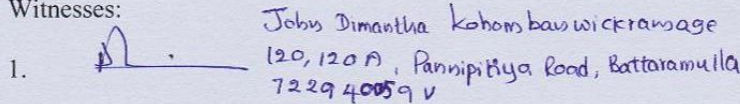 Witnesses:
John Dimantha Kohombanwickramage
1. 120, 120 A, Pannipitiya Road, Battaramulla
722940059 V